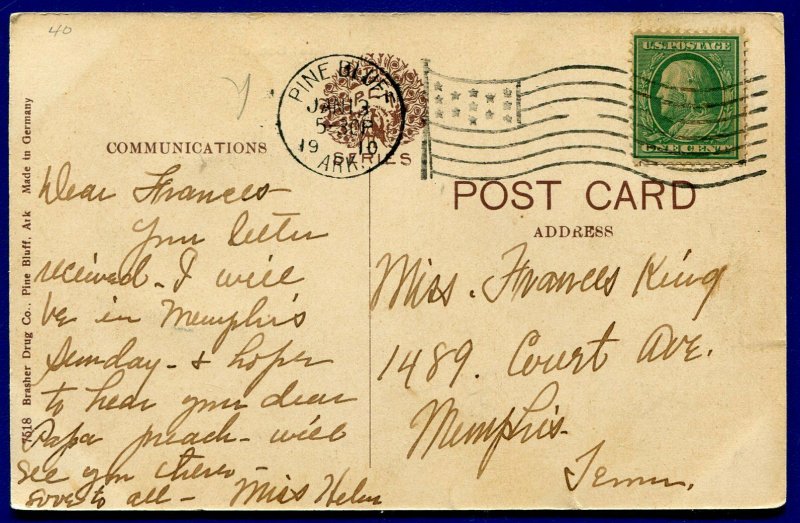 40
PINE BLUFF
JAN 13
5-30P
19 10
ARK.
SERIES
U.S. POSTAGE
ONE CENT
COMMUNICATIONS
POST CARD
ADDRESS
7518 Brasher Drug Co., Pine Bluff, Ark Made in Germany
Dear Frances
Your letter
received. I will
be in Memphis
Sunday - & hope
to hear your dear
Papa preach - will
see you there -
Love to all - Miss Helen
Miss. Frances King
1489. Court Ave.
Memphis.
Tenn.